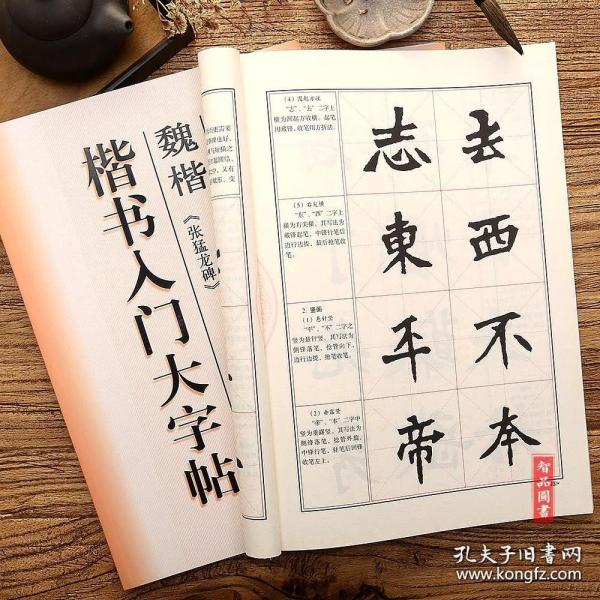 魏楷
《张猛龙碑》
楷书入门大字帖
(4) 圆起方收
“志”、“去”二字上
横为圆起方收横。起笔
用藏锋，收笔用方折法。
志 去
(5) 右尖横
“东”、“西”二字上
横为右尖横，其写法为
藏锋起笔，中锋行笔后
边行边提，最后抢笔收
笔。
東 西
2. 竖画
(1) 悬针竖
“平”、“不”二字之
竖为悬针竖，其写法为
侧锋落笔，捻管向下，
行笔边提，抛笔收笔。
平 不
(2) 垂露竖
“帝”、“本”二字中
竖为垂露竖，其写法为
侧锋落笔，捻管外extend，
中锋行笔，驻笔后回锋
收笔左上。
帝 本
智品圖書
孔夫子旧书网
www.kongfz.com